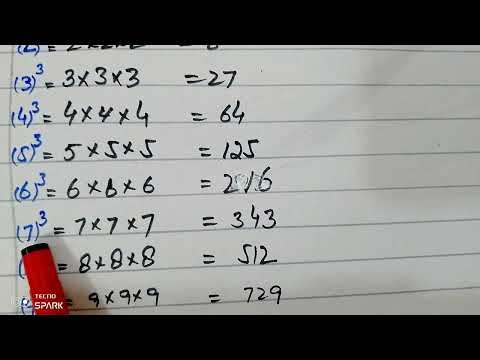 (2)³ = 2×2×2 = 8
(3)³ = 3×3×3 = 27
(4)³ = 4×4×4 = 64
(5)³ = 5×5×5 = 125
(6)³ = 6×6×6 = 216
(7)³ = 7×7×7 = 343
= 8×8×8 = 512
= 9×9×9 = 729
TECNO
SPARK